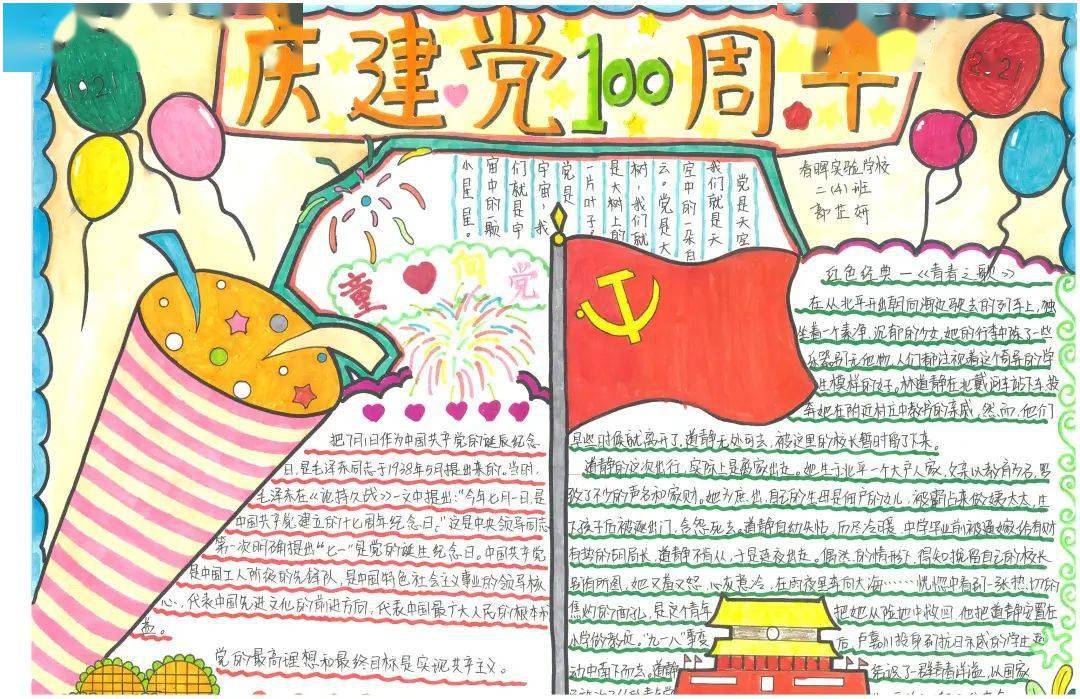 庆建党100周年
2021
2021
春晖实验学校
二(4)班
党是天空
我们就是天
空中的一朵白
云。党是大
树,我们就
是大树上的
一片叶子。
党是
宇宙,我
们就是宇
宙中的一颗
小星星。
童心向党
把7月1日作为中国共产党的诞辰纪念
日,是毛泽东同志于1938年5月提出来的。当时,
毛泽东在《论持久战》一文中提出:“今年七月一日,是
中国共产党建立的十七周年纪念日。”这是中央领导同志
第一次明确提出“七一”是党的诞生纪念日。中国共产党
是中国工人阶级的先锋队,是中国特色社会主义事业的领导核
心,代表中国先进文化的前进方向,代表中国最广大人民的根本利
益。
党的最高理想和最终目标是实现共产主义。
红色经典一《青春之歌》
在从北平开出朝向海边驶去的列车上,独
坐着一个素净、沉郁的少女,她的行李中除了一些
乐器别无他物,人们都注视着这个奇异的学
生模样的女子。林道静在北戴河车站下车投
奔她在附近村庄中教书的亲戚,然而,他们
早些时候就离开了,道静无处可去,被这里的校长暂时留了下来。
道静的这次出行,实际上是离家出走。她生于北平一个大户人家,父亲以教育为名,
了不少的声名和家财。她为庶出,自己的生母是佃户的女儿,被霸占来做姨太太,生
下孩子后被逐出门,含怨死去。道静自幼失怙,
有势的胡局长,道静不肯从,于是连夜出走。偶然的情形下,得知挽留自己的校长
另有所图,她又羞又怒,心灰意冷,在雨夜里奔向大海……恍惚中看到一张热切的
焦灼的面孔,是这个青年
把她从险地中救回,他把道静安置在
小学做教员。“九一八”事变
后,卢嘉川投身到抗日示威的学生运
动中南下而去,道静
结识了一群青年洋溢,以国家